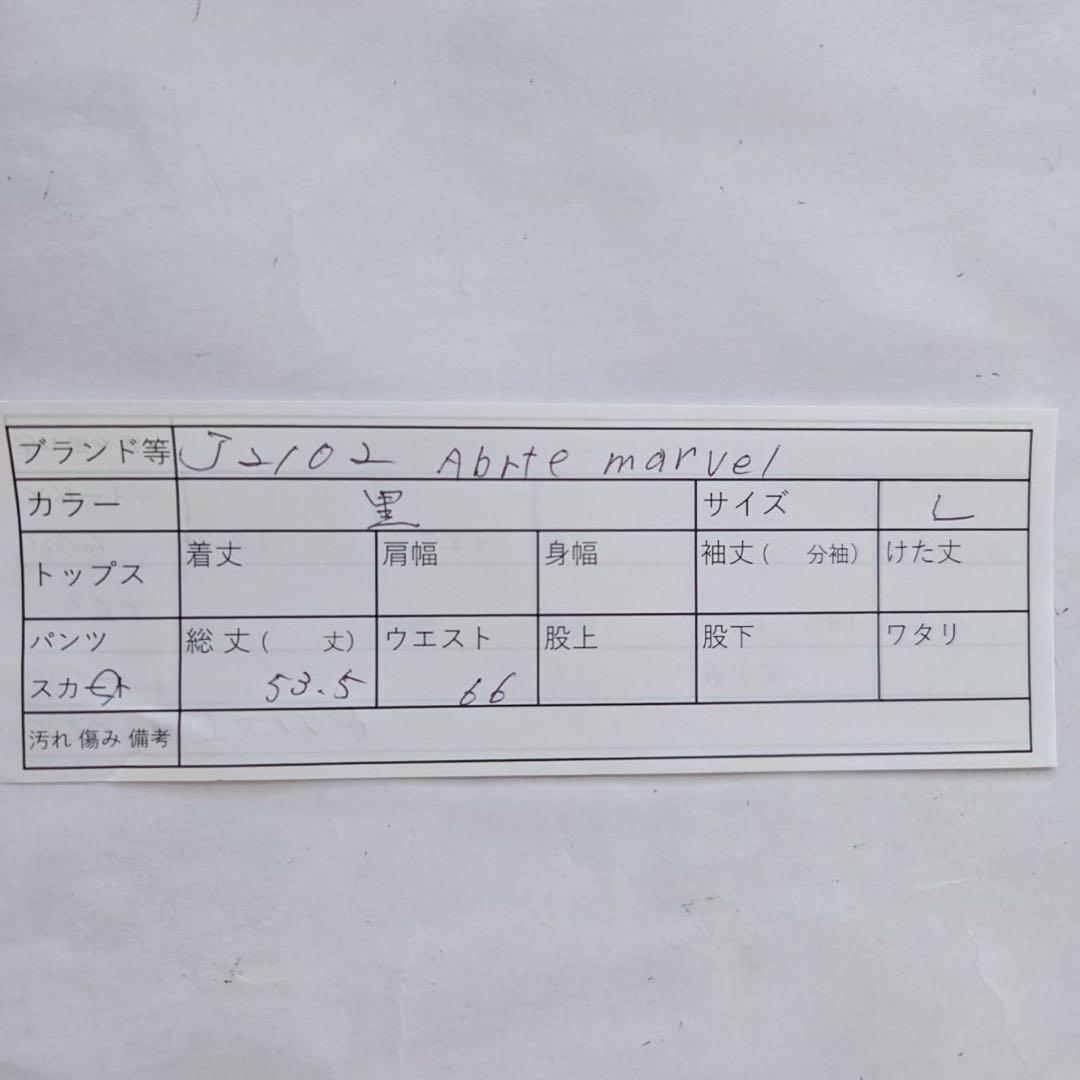 ブランド等 J2102 Abrte marvel
カラー 黒 サイズ L
トップス 着丈 肩幅 身幅 袖丈( 分袖) けた丈
パンツ 総丈( 丈) ウエスト 股上 股下 ワタリ
スカート 53.5 66
汚れ 傷み 備考